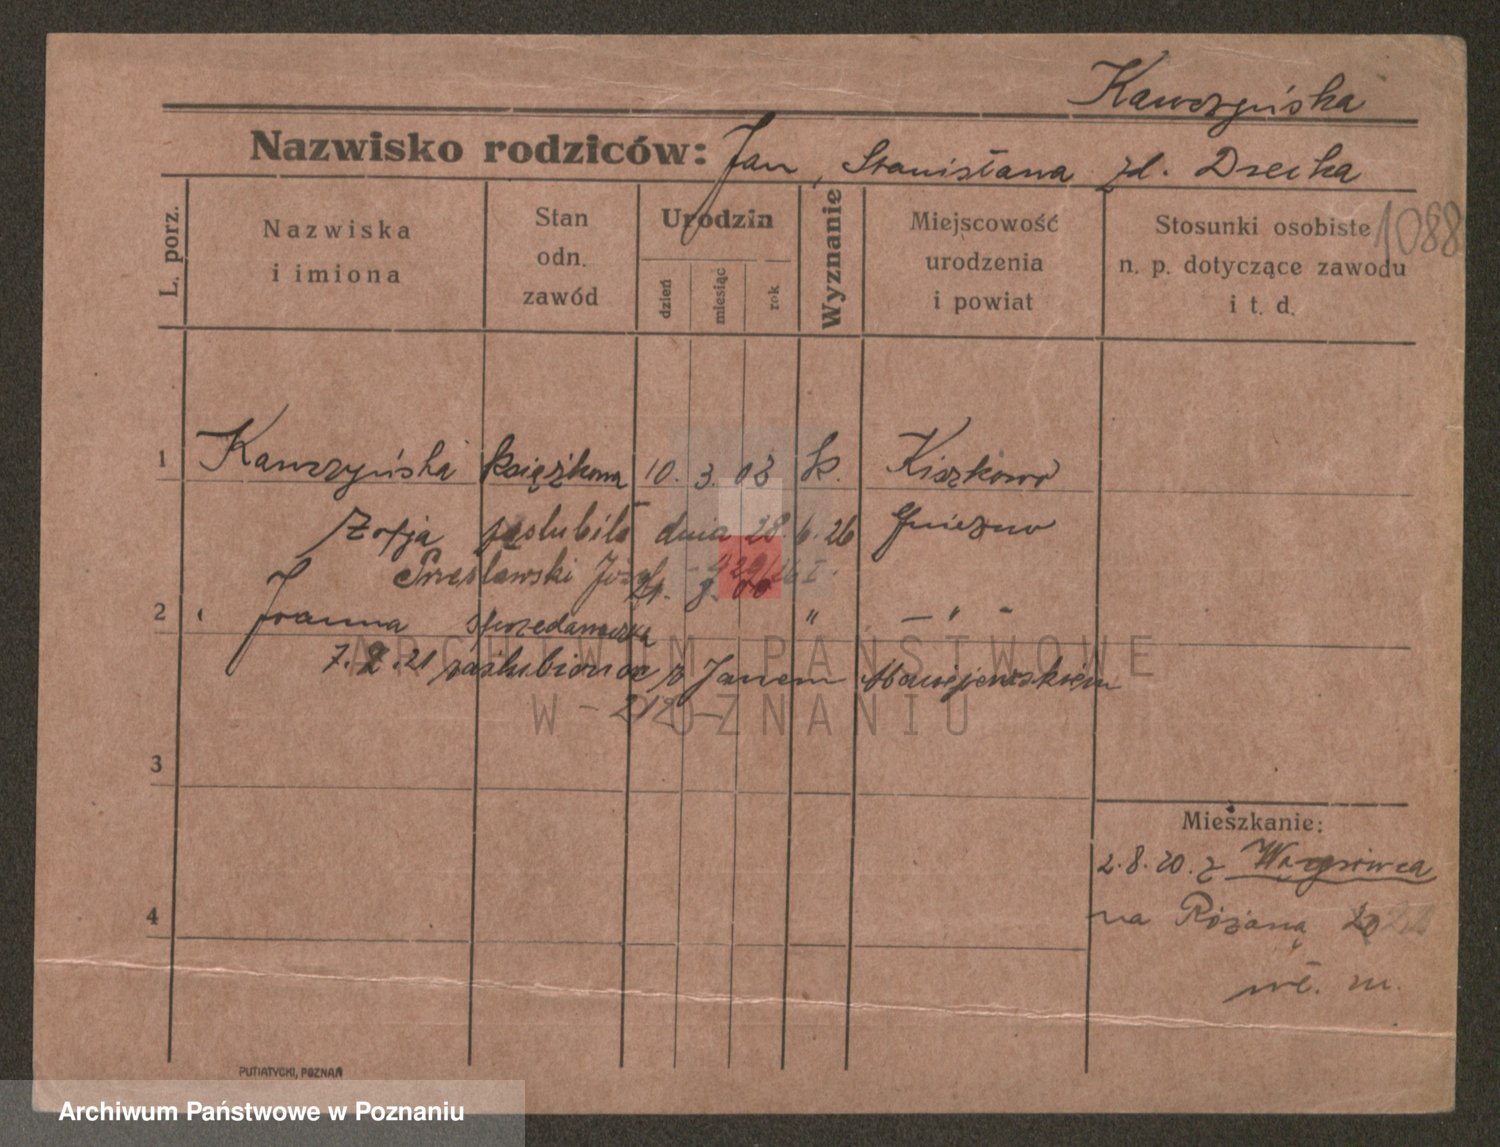 Kawczyńska
Nazwisko rodziców: Jan, Stanisława zd. Dzecka
1088
L. porz.
Nazwiska
i imiona
Stan
odn.
zawód
Urodzin
dzień
miesiąc
rok
Wyznanie
Miejscowość
urodzenia
i powiat
Stosunki osobiste
n. p. dotyczące zawodu
i t. d.
1 Kawczyńska książkowa 10. 3. 03 k. Kiszkowo
Zofja zaślubiła dnia 28. 6. 26 Gniezno
Przesławski Józef
2 Joanna sprzedawaczka " — " —
7. 2. 21 zaślubiona z Janem Maciejewskim
— 212 —
3
4
Mieszkanie:
2. 8. 20. z Wągrówca
na Różaną
wł. m.
PUTIATYCKI, POZNAŃ
ARCHIWUM PAŃSTWOWE
W POZNANIU
Archiwum Państwowe w Poznaniu